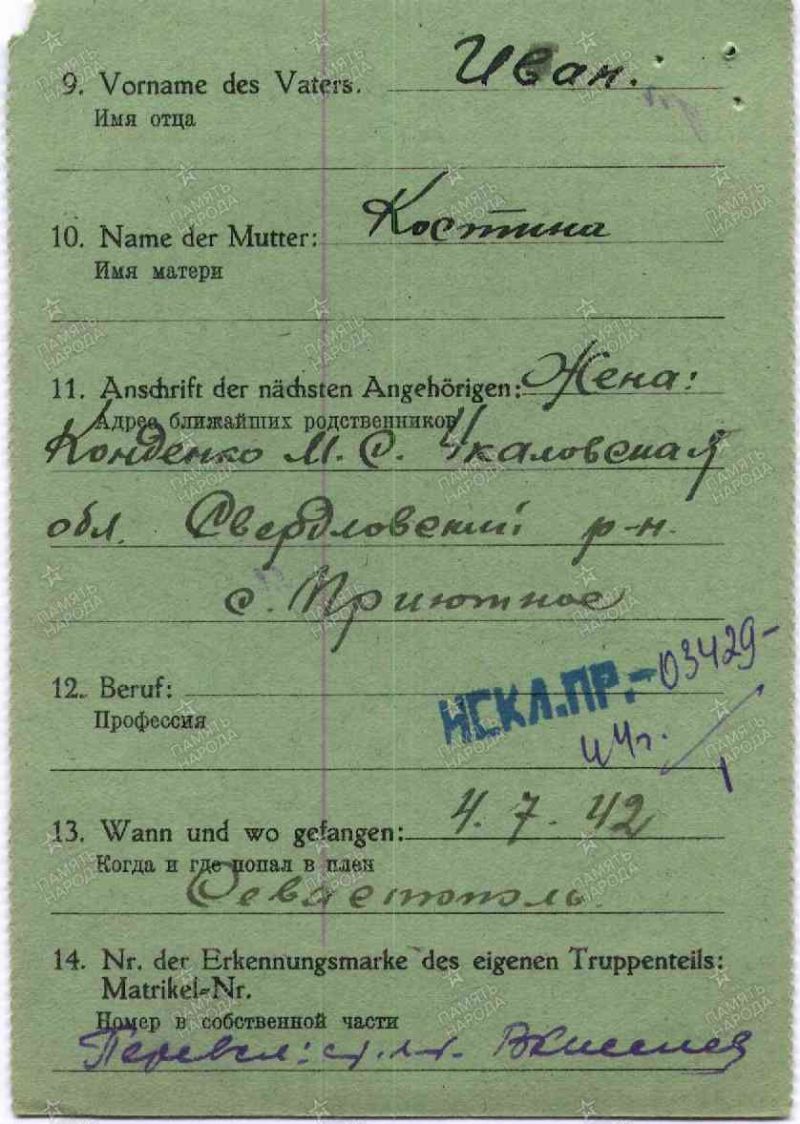 9. Vorname des Vaters. Иван.
Имя отца
10. Name der Mutter: Костина
Имя матери
11. Anschrift der nächsten Angehörigen: Жена:
Адрес ближайших родственников
Конденко М. С. Чкаловская
обл. Свердловский р-н.
с. Приютное
12. Beruf:
Профессия
ИСКЛ.ПР.- 03429-
44г. 1
13. Wann und wo gefangen: 4. 7. 42
Когда и где попал в плен
Севастополь.
14. Nr. der Erkennungsmarke des eigenen Truppenteils:
Matrikel-Nr.
Номер в собственной части
Перевел: ст. лт.
ПАМЯТЬ НАРОДА